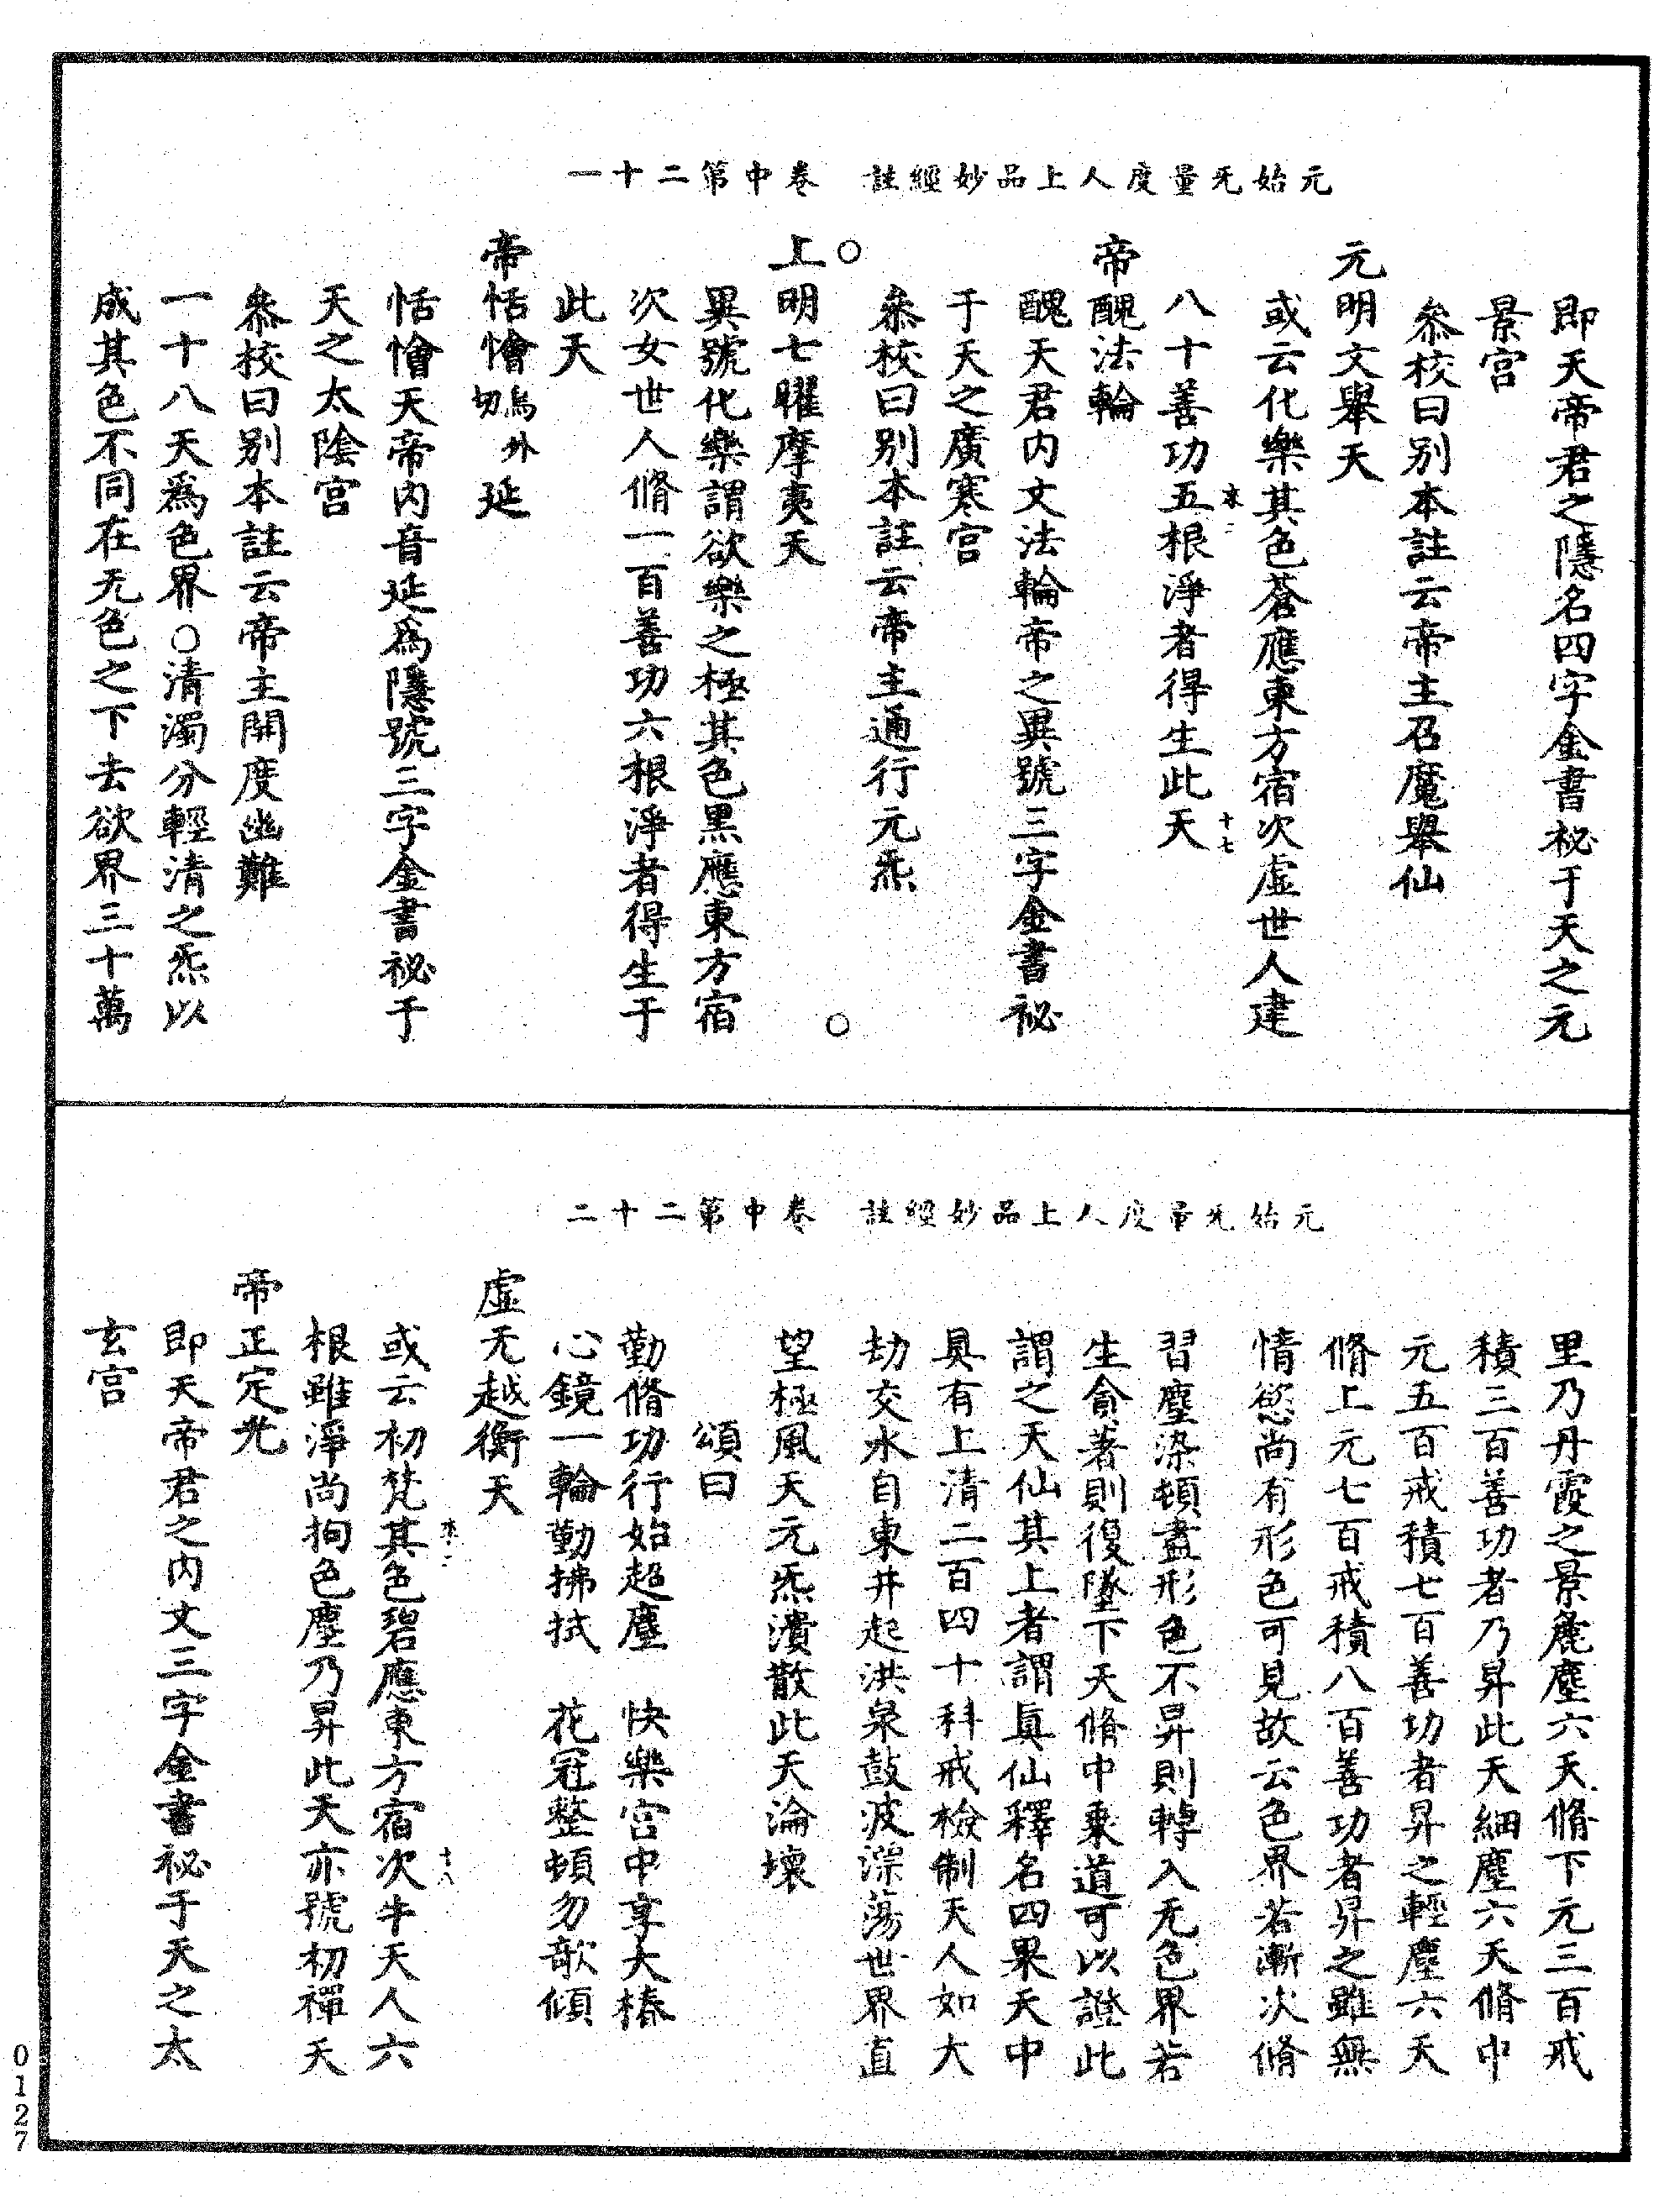 元始旡量度人上品妙經註　卷中第二十一
即天帝君之隱名四字金書祕于天之元
景宮
叅校曰别本註云帝主召魔舉仙
元明文舉天
或云化樂其色蒼應東方宿次虛世人建
八十善功五根淨者得生此天
來二　十七
帝醜法輪
醜天君内文法輪帝之異號三字金書祕
于天之廣寒宮
叅校曰别本註云帝主通行元炁
○
上明七曜摩夷天
○
異號化樂謂欲樂之極其色黑應東方宿
次女世人脩一百善功六根淨者得生于
此天
帝恬懀烏外切延
恬懀天帝内音延為隱號三字金書祕于
天之太陰宮
叅校曰别本註云帝主開度幽難
一十八天為色界○清濁分輕清之炁以
成其色不同在无色之下去欲界三十萬
元始旡量度人上品妙經註　卷中第二十二
里乃丹霞之景麄塵六天脩下元三百戒
積三百善功者乃昇此天細塵六天脩中
元五百戒積七百善功者昇之輕塵六天
脩上元七百戒積八百善功者昇之雖無
情慾尚有形色可見故云色界若漸次脩
習塵染頓盡形色不昇則轉入无色界若
生貪著則復墜下天脩中乗道可以證此
謂之天仙其上者謂眞仙釋名四果天中
具有上清二百四十科戒檢制天人如大
劫交水自東井起洪泉鼓波深蕩世界直
望極風天元炁潰散此天淪壞
頌曰
勤脩功行始超塵　快樂宮中享大椿
心鏡一輪勤拂拭　花冠整頓勿欹傾
虛无越衡天
或云初梵其色碧應東方宿次牛天人六
來二　十八
根雖淨尚拘色塵乃昇此天亦號初禪天
帝正定光
即天帝君之内文三字金書祕于天之太
玄宮
0127